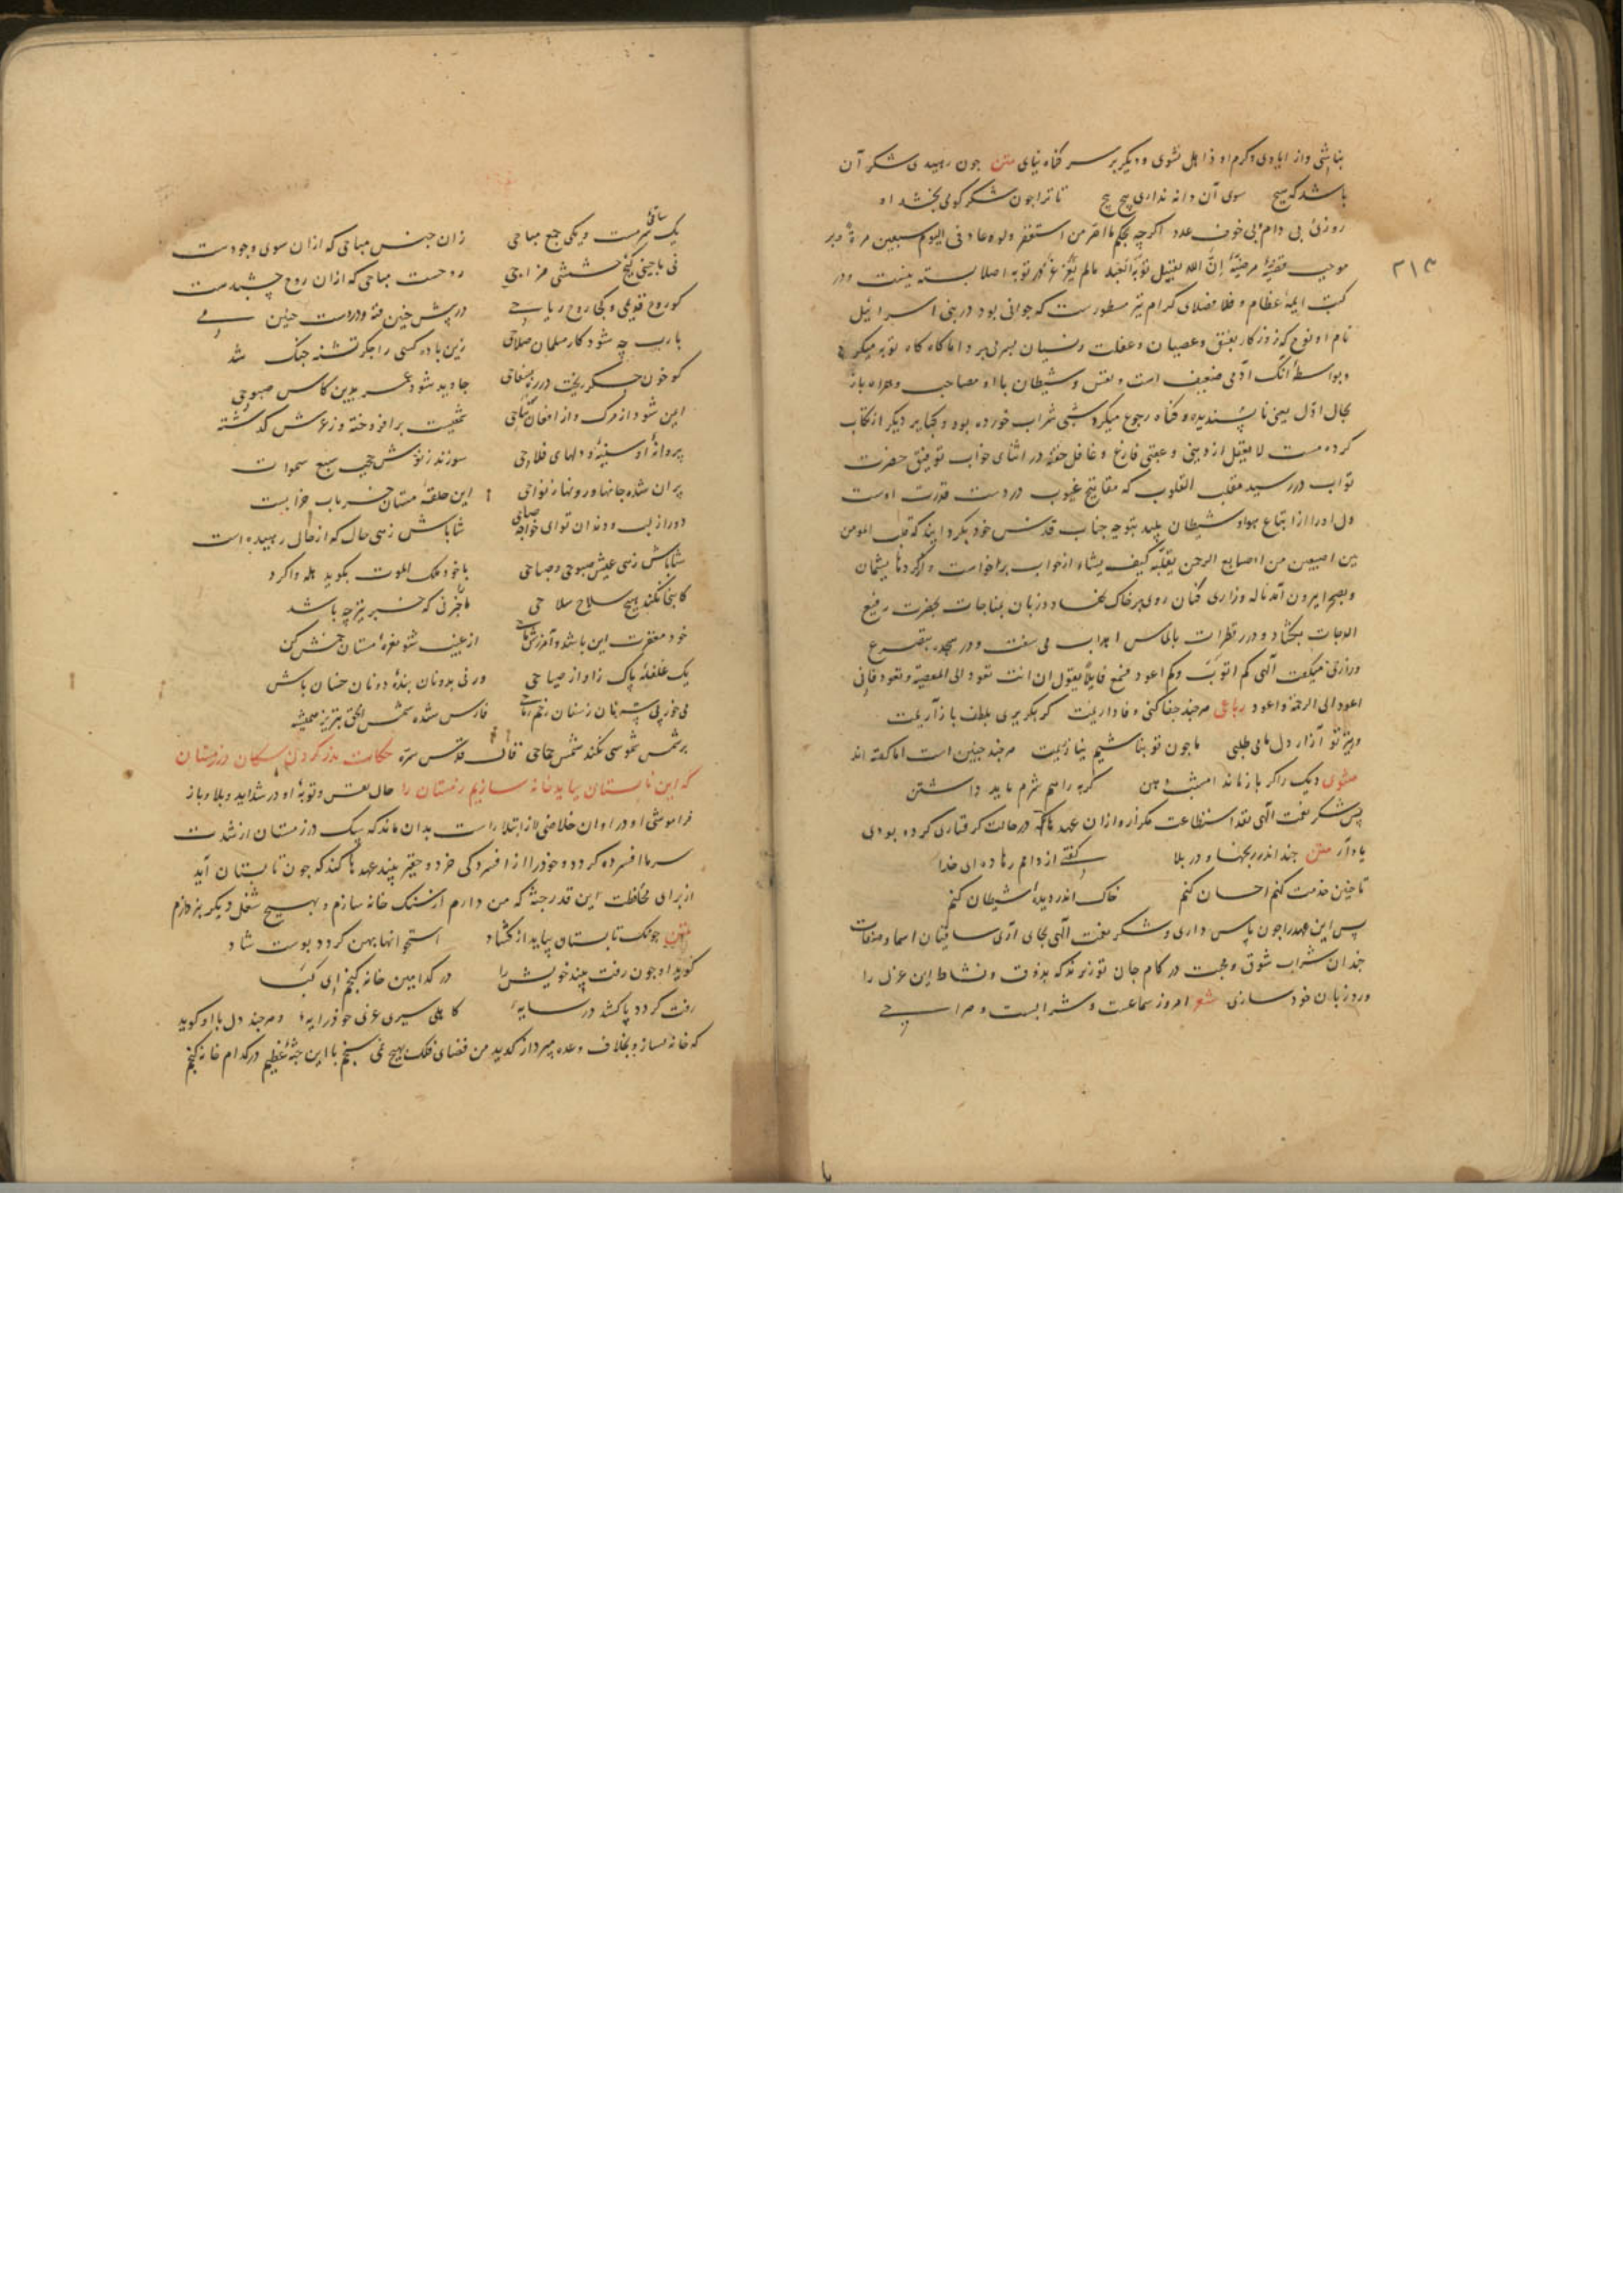 بناشی و از ایادی و کرم او ذاهل نشوی و دیگر بر سر گناه نیای متن چون رهیدی شکر آن
باشد که هیچ سوی آن دانه نداری پیچ پیچ تا ترا چون شکر گوی بخشد او
روزئی بی دام و بی خوف عدد اگر چه بحکم ما اصر من استغفر ولو عاد فی الیوم سبعین مرة و بر
۳۱۳
موجب قضیهٔ مرضیهٔ إنّ الله یقبل توبة العبد مالم یغرغر در توبه اصلا بسته نیست و در
کتب ایمهٔ عظام و فضلای کرام نیز مسطورست که جوانی بود در بنی اسرایل
نام او نوح که روزکار بفسق و عصیان و غفلت و نسیان بسر می برد اما کاه کاه توبه میکرد
و بواسطهٔ آنک آدمی ضعیف است و نفس و شیطان با او مصاحب و همراه باز
بحال اوّل یعنی ناپسندیده و کناه رجوع میکرد شبی شراب خورده بود و کبایر دیگر ارتکاب
کرده مست لا یعقل از دینی و عقبی فارغ و غافل خفته در اثنای خواب توفیق حضرت
تواب در رسید مقلب القلوب که مفاتیح غیوب در دست قدرت اوست
دل او را از اتباع هوا و شیطان پلید بتوجه جناب قدس خود بکردانید که قلب المومن
بین اصبعین من اصابع الرحمن یقلبه کیف یشاء از خواب برخواست و از کردها پشیمان
و بصحرا بیرون آمد ناله و زاری کنان روی بر خاک نهاد و زبان بمناجات بحضرت رفیع
الدرجات بکشاد و درر قطرات بالماس اهداب می سفت و در سجده بتضرع
و زاری میکفت آلهی کم اتوب و کم اعود فسمع قایلاً یقول ان انت تعود الی المعصیة و تعود فانی
اعود الی الرحمة و اعود رباعی هر چند جفا کنی وفا داریمت کر بکریزی بلطف باز آریمت
ور نیز تو آزار دل ما می طلبی ما چون تو نباشیم نیازاریمت هر چند چنین است اما کفته اند
مثنوی دیک را کر باز ماند امشب دهن کربه را هم شرم باید داشتن
پس شکر نعمت آلهی بقدر استطاعت مکزار و از آن عهدها که در حالت کرفتاری کرده بودی
یاد آر متن چند اندر رنجها و در بلا کفتی از دامم رها ده ای خدا
تا چنین خدمت کنم احسان کنم خاک اندر دیدهٔ شیطان کنم
پس این عهد را چون پاس داری و شکر نعمت آلهی بجای آری ساقیان اسما و صفات
چندان شراب شوق و محبت در کام جان تو ریزند که بذوق و نشاط این غزل را
ورد زبان خود سازی شعر امروز سماعست و شرابست و صراحی
یک ساقی سرمست و یکی جمع مباحی زان جنس مباحی که از آن سوی وجودست
نی باحیی کیج حشیشی مزاحی روحست مباحی که از آن روح چشیدست
کو روح قدیمی و کجا روح ریاحی در پیش چنین فتنه و در دست چنین می
یارب چه شود کار مسلمان صلاحی زین باده کسی را جکر تشنه خنک شد
کو خون جکر ریخت در ره بسفاحی جاوید شود عمر بدین کاس صبوحی
ایمن شود از مرک و از افغان نیاحی شمعیست برافروخته وز عرش کذشته
پروانهٔ او سینه و دلهای فلاحی سوزند ز نورش حجب سبع سموات
پران شده جانها و روانها نواحی این حلقهٔ مستان خراباب خرابست
دور از لب و دندان تو ای خواجه صاحی شاباش زهی حال که از حال رهیدست
شاباش زهی عیش صبوحی و صباحی با خود ملک الموت بکوید هله واکرد
کاینجا نکند هیچ سلاح سلاحی ما خبر نی که خبر نیز چه باشد
خود مغفرت این باشد و آمرزش ماحی از غیب شنو نعرهٔ مستان خمش کن
یک غلغلهٔ پاک ز آواز صیاحی ورنی بدو نان بندهٔ دونان خسان باش
می خور پی نان زسنان زخم رماحی فارس شده شمس الحق تبریز همیشه
بر شمس شموسی نکند شمس جماحی قال قدس سره حکایت نذر کردن سکان در زمستان
که این تابستان بیاید خانه سازیم زمستان را حال نفس و توبهٔ او در شداید و بلا و باز
فراموشی او در اوان خلاصی از ابتلا راست بدان ماند که سک در زمستان از شدت
سرما افسرده کردد و خود را از افسردکی خرد و حقیر بیند عهدها کند که چون تابستان آید
از برای محافظت این قدر جثه که من دارم از سنک خانه سازم و بهیچ شغل دیکر نپردازم
متن چونک تابستان بیاید از کشاد استخوانها پهن کردد پوست شاد
کوید او چون زفت بیند خویش را در کدامین خانه کنجم ای کیا
زفت کردد پا کشد در سایهٔ کاهلی سیری غری خود رایهٔ و هر چند دل با او کوید
که خانه بساز و بخلاف وعده مپرداز کوید من فضای فلک بهیچ نمی سنجم با این جثهٔ عظیم در کدام خانه کنجم